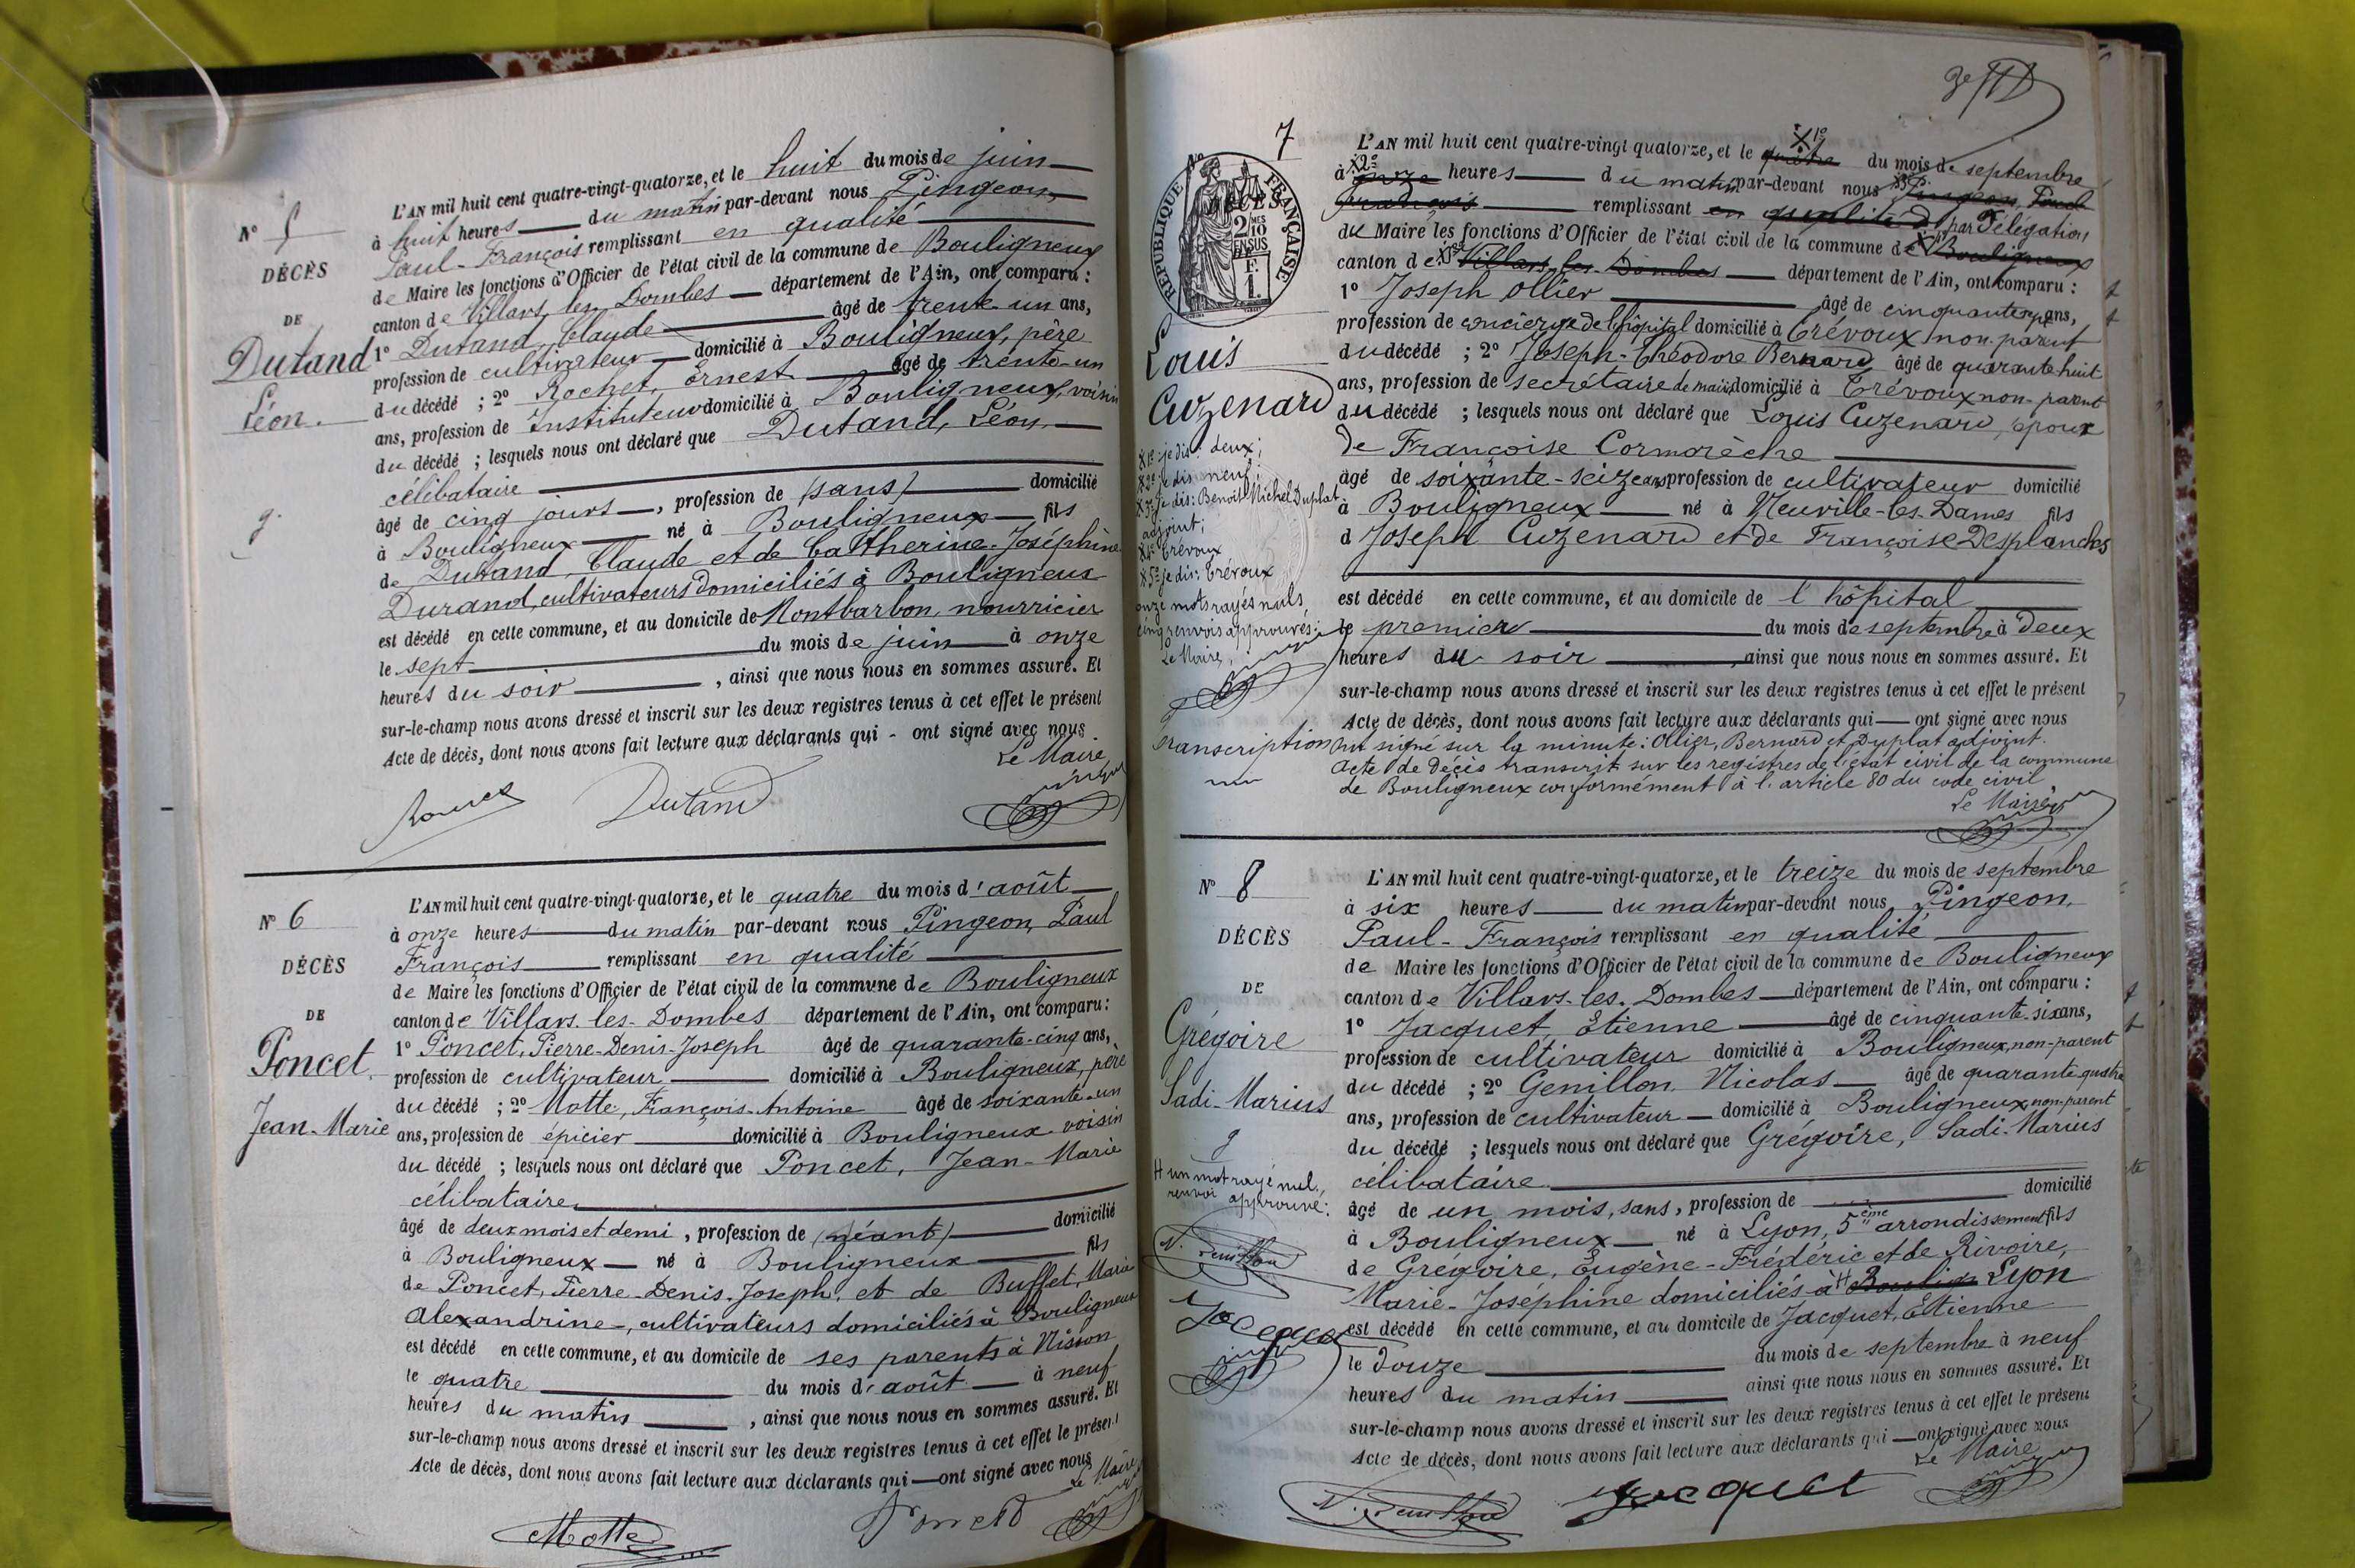 L'AN mil huit cent quatre-vingt-quatorze, et le huit du mois de juin
N° 5
à huit heures du matin par-devant nous Pingeon,
Paul-François remplissant en qualité
DÉCÈS
de Maire les fonctions d'Officier de l'état civil de la commune de Bouligneux
DE
canton de Villars les Dombes département de l'Ain, ont comparu :
Dutand
1° Dutand, Claude âgé de trente un ans,
profession de cultivateur domicilié à Bouligneux, père
Léon.
du décédé ; 2° Rochet, Ernest âgé de trente-un
ans, profession de Instituteur domicilié à Bouligneux, voisin
du décédé ; lesquels nous ont déclaré que Dutand, Léon,
célibataire
âgé de cinq jours, profession de (sans) domicilié
à Bouligneux né à Bouligneux fils
de Dutand, Claude et de Catherine-Joséphine
Durand, cultivateurs domiciliés à Bouligneux
est décédé en cette commune, et au domicile de Montbarbon, nourricier
le sept du mois de juin à onze
heures du soir, ainsi que nous nous en sommes assuré. Et
sur-le-champ nous avons dressé et inscrit sur les deux registres tenus à cet effet le présent
Acte de décès, dont nous avons fait lecture aux déclarants qui - ont signé avec nous
Le Maire
Dutand
L'AN mil huit cent quatre-vingt-quatorze, et le quatre du mois d'août
N° 6
à onze heures du matin par-devant nous Pingeon, Paul
DÉCÈS
François remplissant en qualité
de Maire les fonctions d'Officier de l'état civil de la commune de Bouligneux
DE
canton de Villars-les-Dombes département de l'Ain, ont comparu :
Poncet,
1° Poncet, Pierre-Denis-Joseph âgé de quarante-cinq ans,
profession de cultivateur domicilié à Bouligneux, père
Jean-Marie
du décédé ; 2° Motte, François-Antoine âgé de soixante-un
ans, profession de épicier domicilié à Bouligneux voisin
du décédé ; lesquels nous ont déclaré que Poncet, Jean-Marie
célibataire,
âgé de deux mois et demi, profession de (néant) domicilié
à Bouligneux né à Bouligneux fils
de Poncet, Pierre-Denis-Joseph, et de Buffet, Marie
Alexandrine, cultivateurs domiciliés à Bouligneux
est décédé en cette commune, et au domicile de ses parents à Nision
le quatre du mois d'août à neuf
heures du matin, ainsi que nous nous en sommes assuré. Et
sur-le-champ nous avons dressé et inscrit sur les deux registres tenus à cet effet le présent
Acte de décès, dont nous avons fait lecture aux déclarants qui — ont signé avec nous
Le Maire
Motte
Poncet
N° 7
RÉPUBLIQUE FRANÇAISE
L'AN mil huit cent quatre-vingt quatorze, et le quatre X1° du mois de septembre
à X2° onze heures du matin par-devant nous X3° Pingeon, Paul
François remplissant en qualité d par Délégation
du Maire les fonctions d'Officier de l'état civil de la commune de X4° Bouligneux
canton de X5° Villars-les-Dombes département de l'Ain, ont comparu :
1° Joseph Ollier âgé de cinquante sept ans,
profession de concierge de l'hôpital domicilié à Trévoux non parent
Louis
du décédé ; 2° Joseph-Théodore Bernard âgé de quarante huit
ans, profession de secrétaire de mairie domicilié à Trévoux non-parent
Cuzenard
du décédé ; lesquels nous ont déclaré que Louis Cuzenard, époux
de Françoise Cormorèche
âgé de soixante-seize ans profession de cultivateur domicilié
à Bouligneux né à Neuville-les-Dames fils
d Joseph Cuzenard et de Françoise Desplanches
est décédé en cette commune, et au domicile de l'hôpital
le premier du mois de septembre à deux
heures du soir, ainsi que nous nous en sommes assuré. Et
sur-le-champ nous avons dressé et inscrit sur les deux registres tenus à cet effet le présent
Acte de décès, dont nous avons fait lecture aux déclarants qui — ont signé avec nous
Ont signé sur la minute : Ollier, Bernard et Duplat adjoint.
Acte de décès transcrit sur les registres de l'état civil de la commune
de Bouligneux conformément à l'article 80 du code civil
Le Maire
X1° je dis : deux ;
X2° je dis neuf ;
X3° je dis : Benoit Michel Duplat
adjoint ;
X4° Trévoux
X5° je dis : Trévoux
onze mots rayés nuls,
cinq renvois approuvés :
Le Maire,
Transcription
N° 8
L'AN mil huit cent quatre-vingt-quatorze, et le treize du mois de septembre
à six heures du matin par-devant nous Pingeon,
DÉCÈS
Paul-François remplissant en qualité
de Maire les fonctions d'Officier de l'état civil de la commune de Bouligneux
DE
canton de Villars-les-Dombes département de l'Ain, ont comparu :
Grégoire
1° Jacquet, Etienne âgé de cinquante-six ans,
profession de cultivateur domicilié à Bouligneux, non-parent
Sadi-Marius
du décédé ; 2° Genillon Nicolas âgé de quarante-quatre
ans, profession de cultivateur domicilié à Bouligneux non-parent
du décédé ; lesquels nous ont déclaré que Grégoire, Sadi-Marius
célibataire
âgé de un mois, sans, profession de domicilié
à Bouligneux né à Lyon, 5ème arrondissement fils
de Grégoire, Eugène-Frédéric et de Rivoire,
Marie-Joséphine domiciliés à H Boulign Lyon
est décédé en cette commune, et au domicile de Jacquet, Etienne
le douze du mois de septembre à neuf
heures du matin ainsi que nous nous en sommes assuré. Et
sur-le-champ nous avons dressé et inscrit sur les deux registres tenus à cet effet le présent
Acte de décès, dont nous avons fait lecture aux déclarants qui — ont signé avec nous
Le Maire
H un mot rayé nul,
renvoi approuvé :
Jacquet
Jacquet